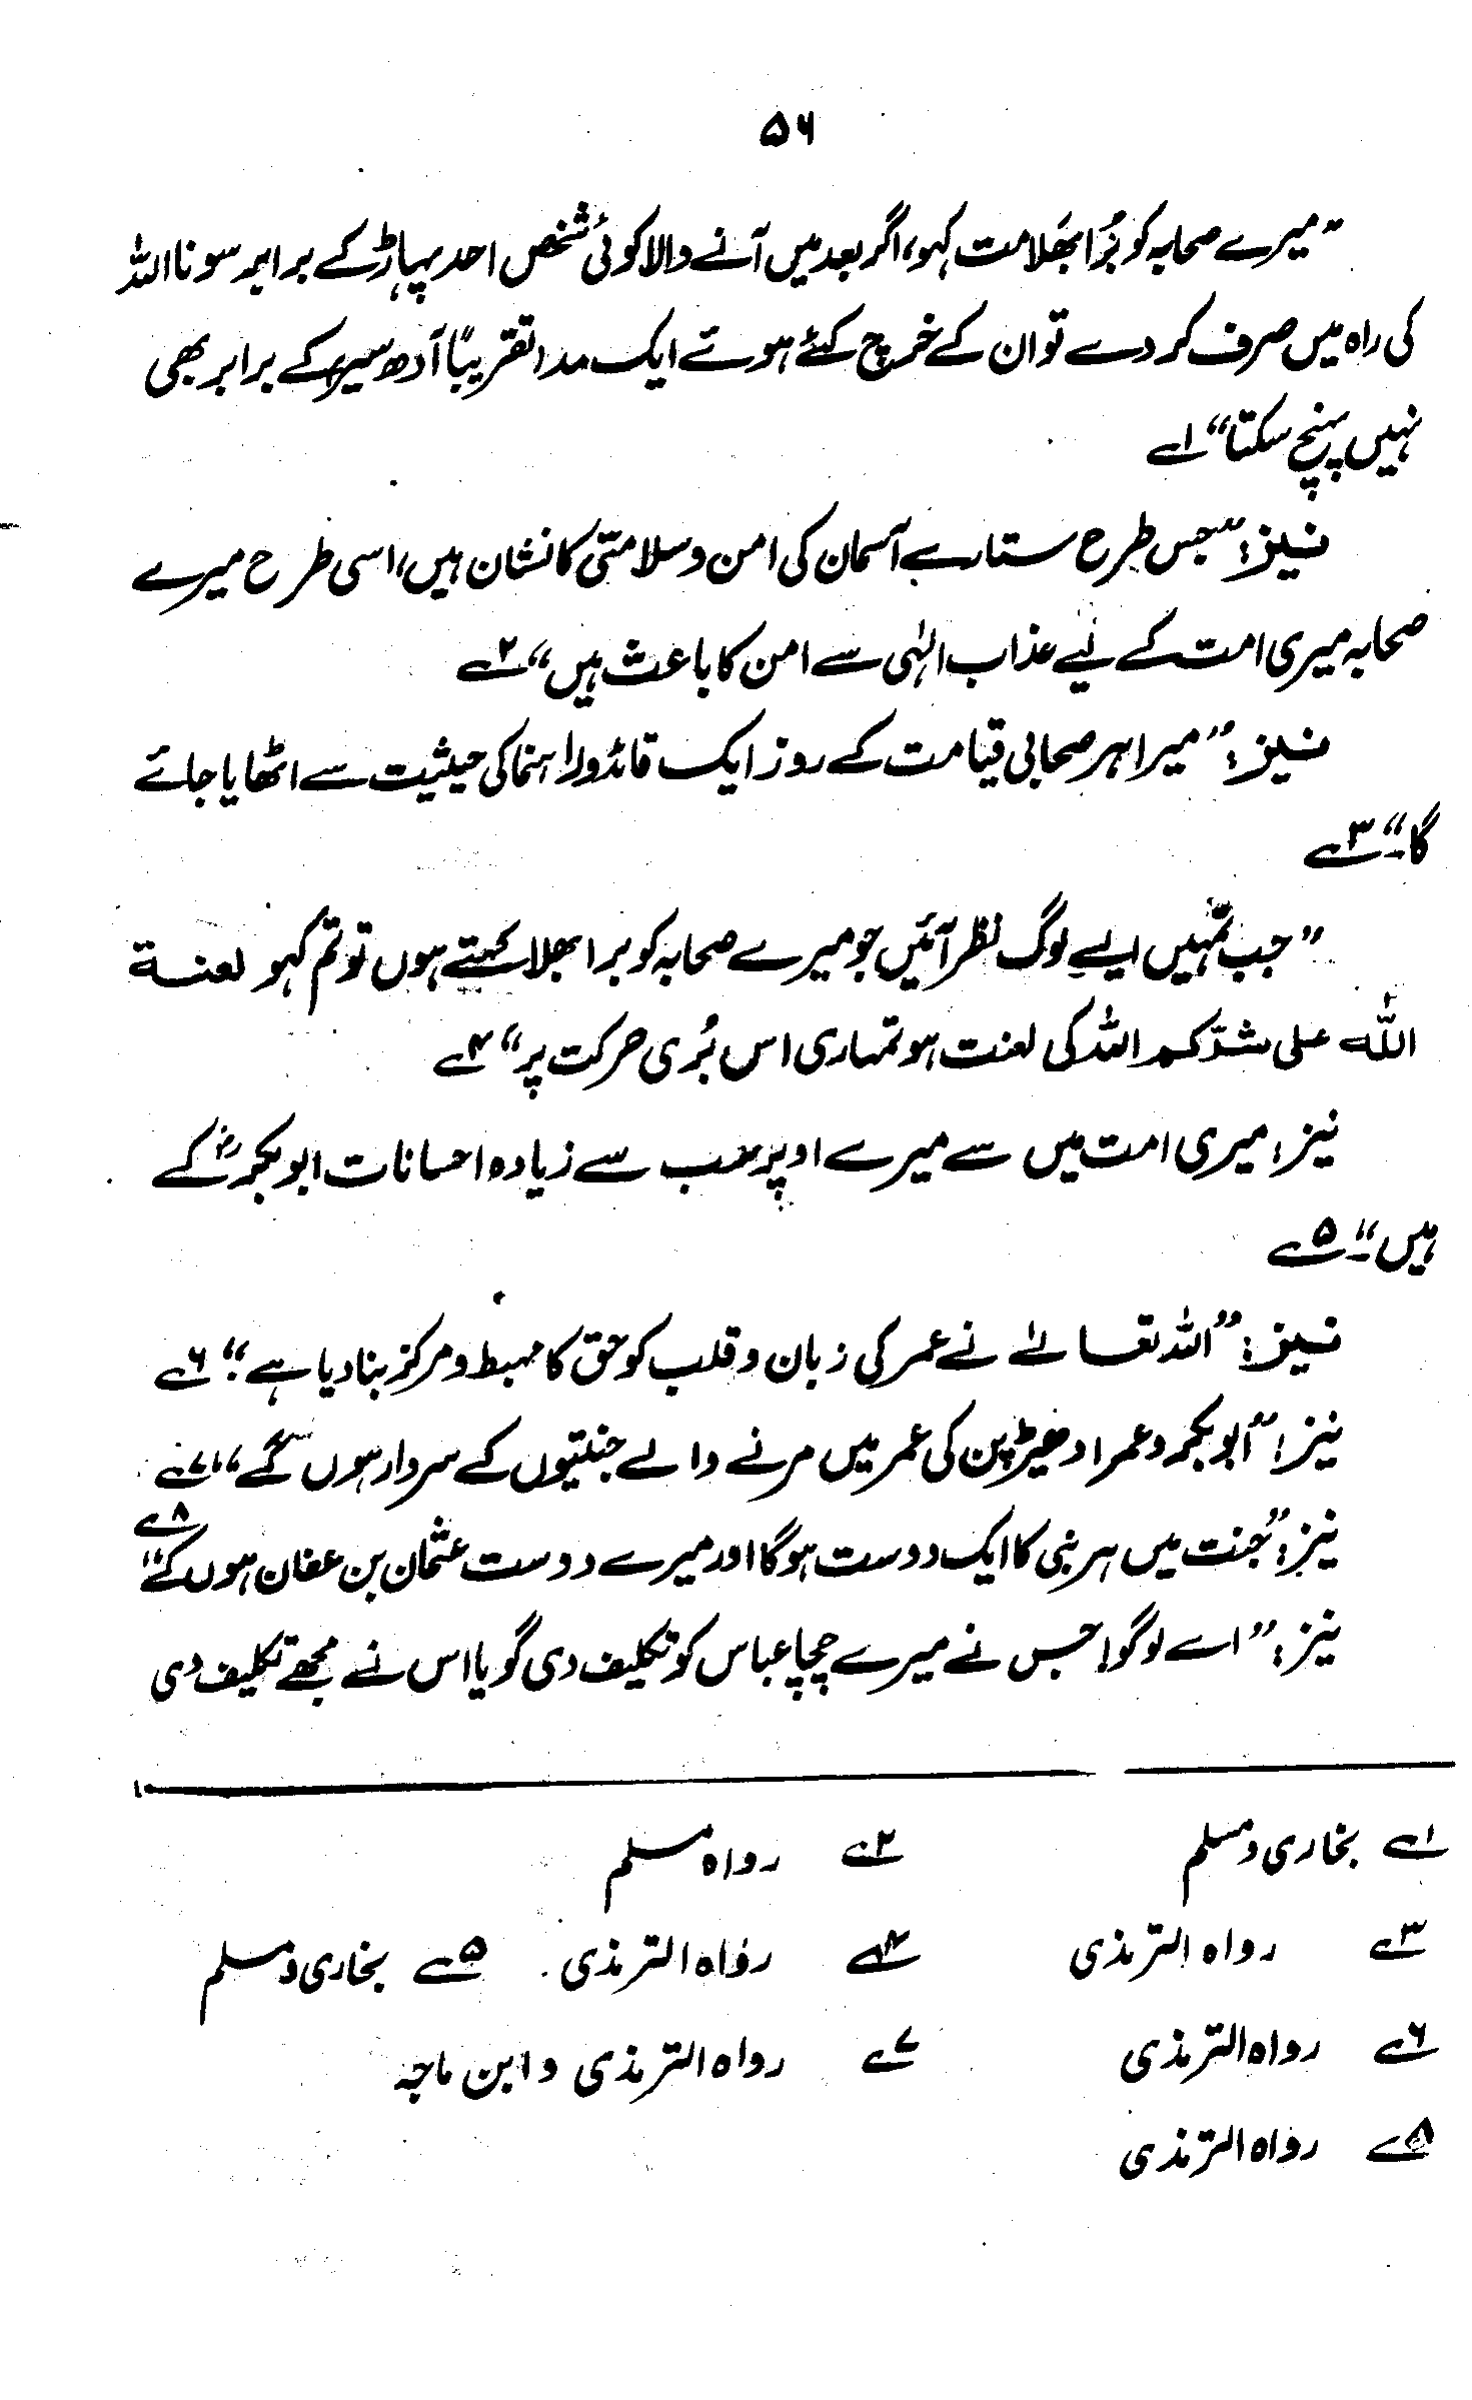 ۵۶
”میرے صحابہ کو بُرا بھَلا مت کہو، اگر بعد میں آنے والا کوئی شخص احد پہاڑ کے برابر سونا اللہ
کی راہ میں صرف کر دے تو ان کے خرچ کئے ہوئے ایک مد (تقریباً آدھ سیر) کے برابر بھی
نہیں پہنچ سکتا“ ۱ے
نیز: ”جس طرح ستارے آسمان کی امن و سلامتی کا نشان ہیں، اسی طرح میرے
صحابہ میری امت کے لیے عذاب الٰہی سے امن کا باعث ہیں“ ۲ے
نیز: ”میرا ہر صحابی قیامت کے روز ایک قائد و راہنما کی حیثیت سے اٹھایا جائے
گا۔“ ۳ے
”جب تمہیں ایسے لوگ نظر آئیں جو میرے صحابہ کو برا بھلا کہتے ہوں تو تم کہو لعنة
اللّٰه علی شرّکم اللہ کی لعنت ہو تمہاری اس بُری حرکت پر“ ۴ے
نیز: میری امت میں سے میرے اوپر سب سے زیادہ احسانات ابوبکرؓ کے
ہیں۔“ ۵ے
نیز: ”اللہ تعالےٰ نے عمر کی زبان و قلب کو حق کا مہبط و مرکز بنا دیا ہے“ ۶ے
نیز: ”ابوبکر و عمر ادھیڑپن کی عمر میں مرنے والے جنتیوں کے سردار ہوں گے“ ۷ے
نیز: ”جنت میں ہر نبی کا ایک دوست ہوگا اور میرے دوست عثمان بن عفان ہوں گے“ ۸ے
نیز: ”اے لوگو! جس نے میرے چچا عباس کو تکلیف دی گویا اس نے مجھے تکلیف دی
۱ے بخاری و مسلم ۲ے رواہ مسلم
۳ے رواہ الترمذی ۴ے رواہ الترمذی ۵ے بخاری و مسلم
۶ے رواہ الترمذی ۷ے رواہ الترمذی و ابن ماجہ
۸ے رواہ الترمذی